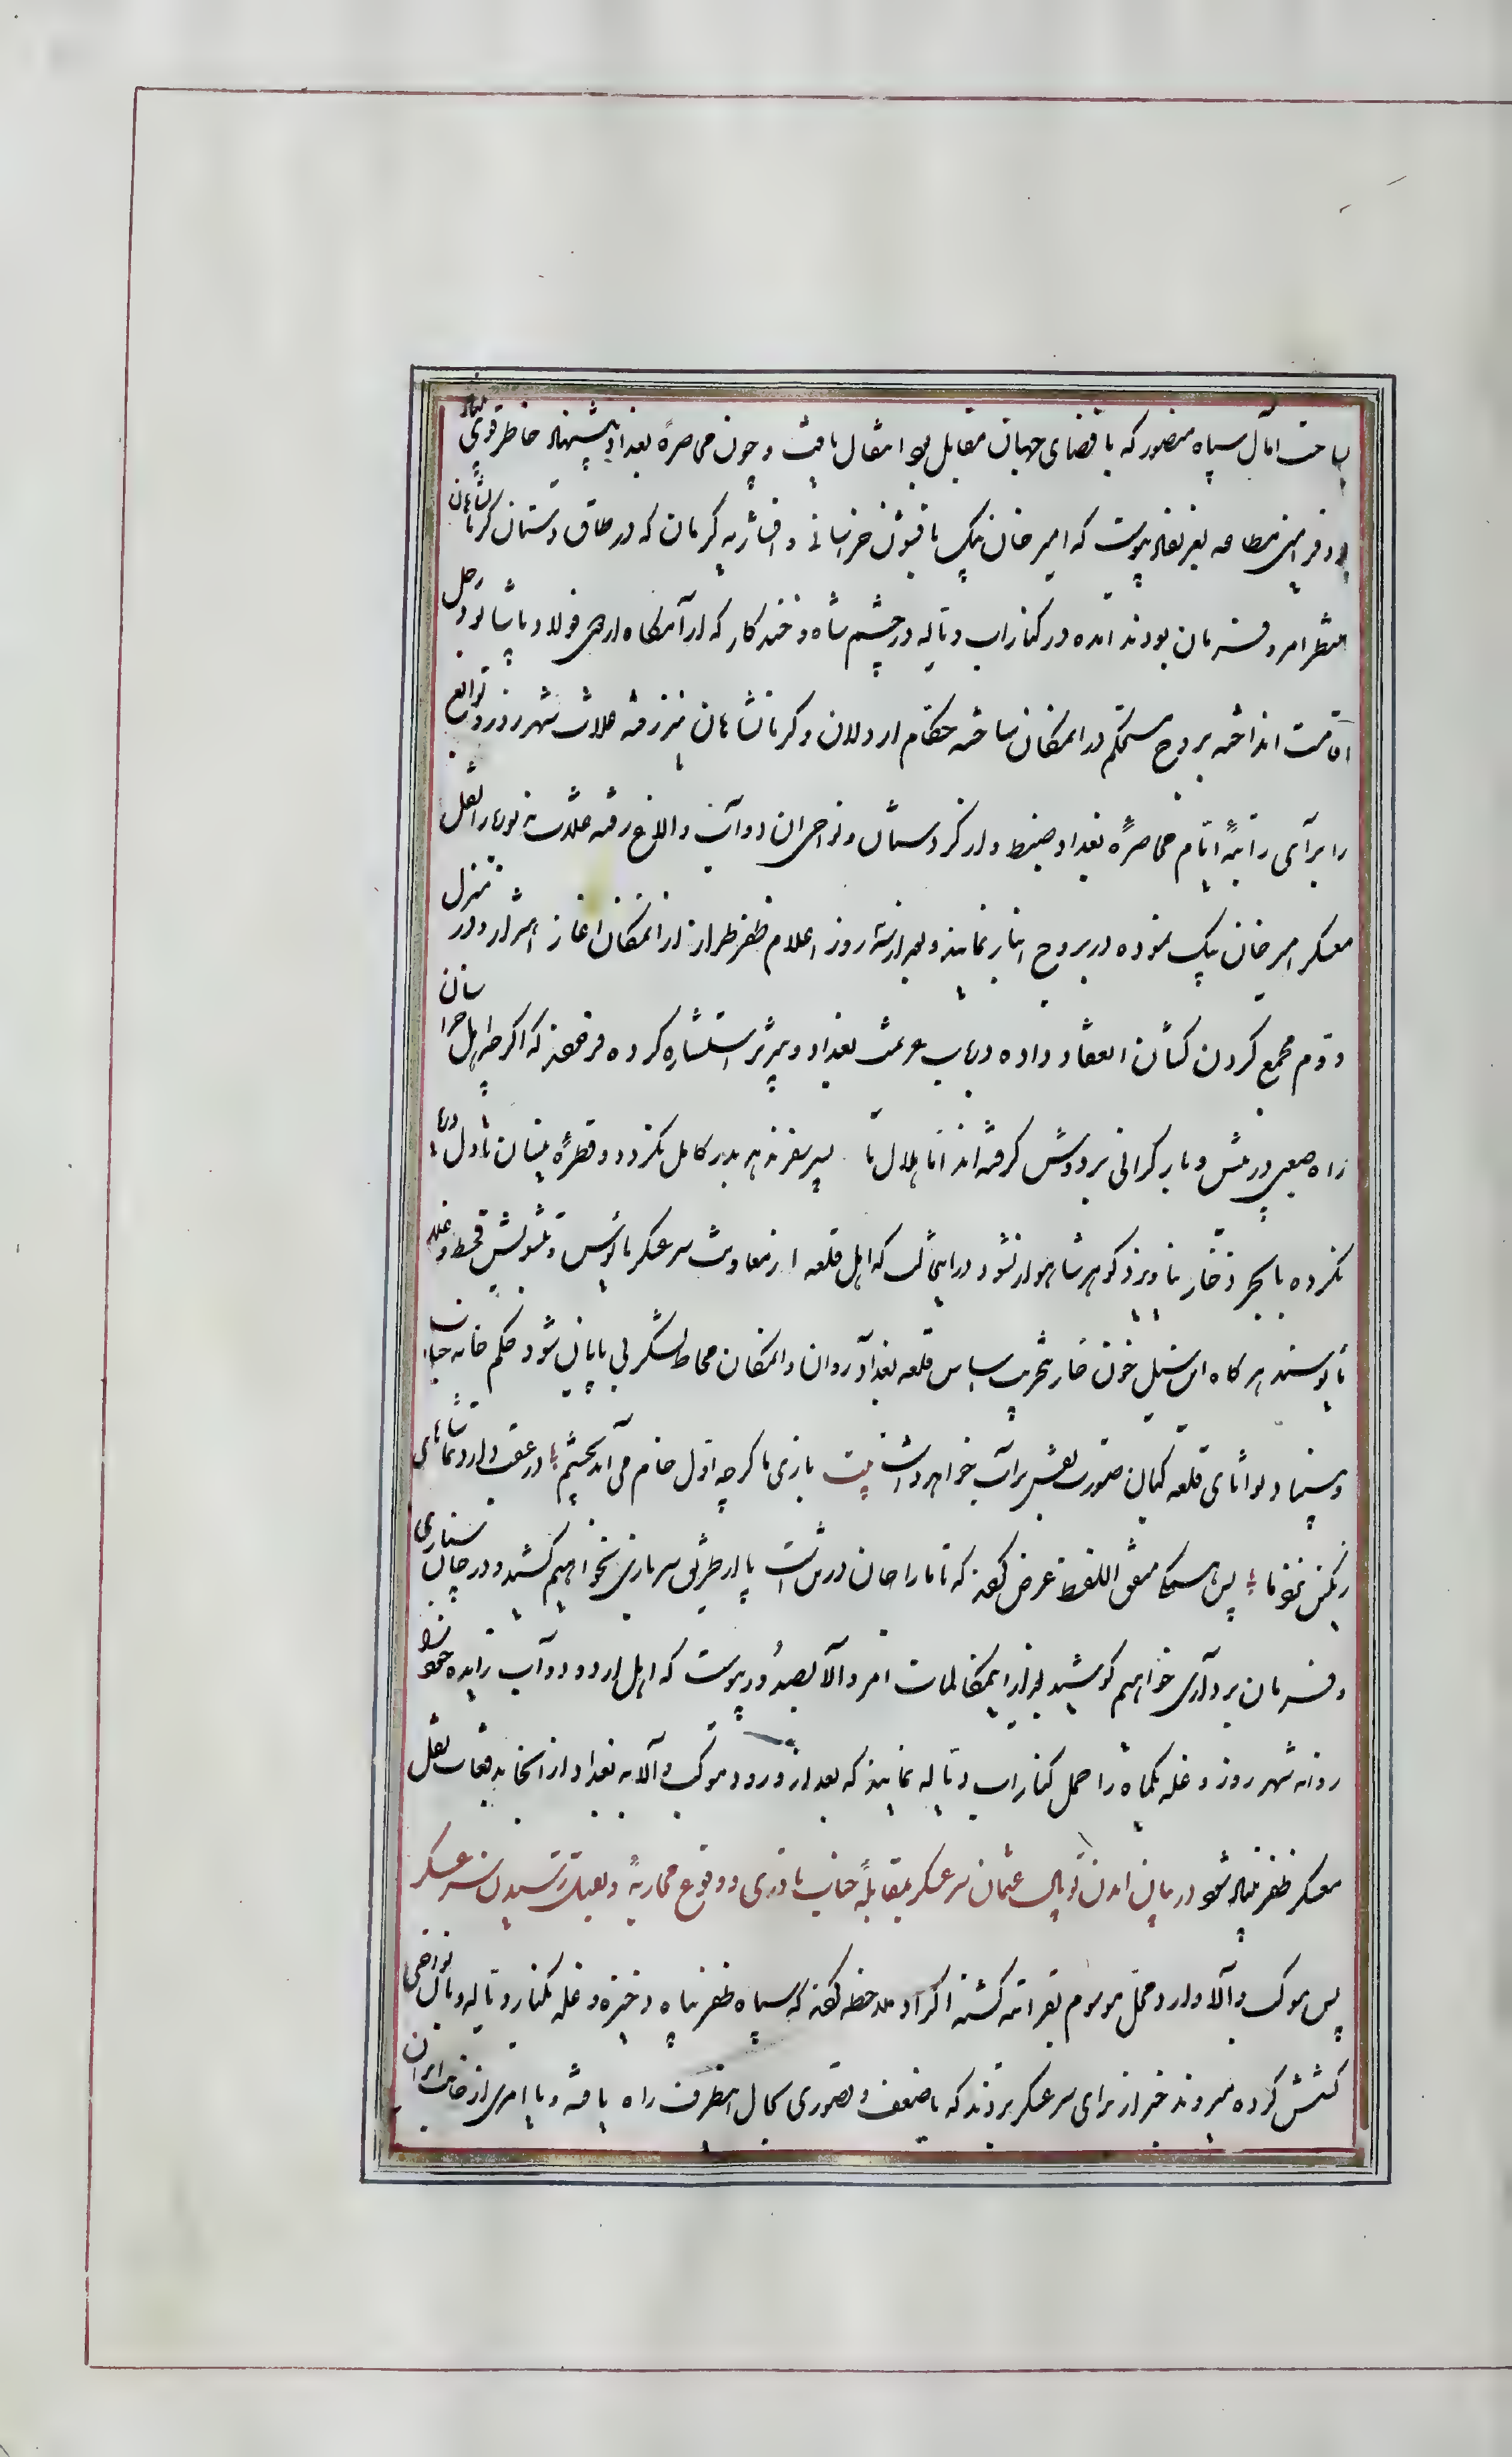 ساحت آمال سپاه منصور که با فضای جهان مقابل بود انتقال یافت و چون محاصره بغداد پیشنهاد خاطر قوی بنیاد
بود فرامین مطاعه بعز نفاذ پیوست که امیر خان بیک با قشون خراسانی و افشاریه کرمان که در طاق وستان کرمانشاهان
منتظر امر و فرمان بودند آمده در کنار آب دیاله در چشم شاه و خندکار که از آرامگاه اردوی فولاد پاشا بود رحل
اقامت انداخته بروج مستحکم در انمکان ساخته حکام اردلان و کرمانشاهان نیز رفته غلات شهر زور و توابع
را برای راتبه ایام محاصره بغداد ضبط و از کردستان و نواحی ان دواب و الاغ رفته غلات مذبوره را نقل
معسکر امیر خان بیک نموده در بروج انبار نمایند و بعد از سه روز اعلام ظفر طراز از انمکان اغاز اهتزاز و در منزل
دوم مجمع کردن کشان انعقاد داده در باب عزیمت بغداد و تدبیر استشاره کرده فرمودند که اگر چه اهل خراسان
راه صعبی در پیش و بار کرانی بر دوش گرفته اند اما هلال تا سیر سفر نه بیند بدر کامل نکردد و قطره نیسان تا دل دریا
نکرده با بحر ذخار نیاویزد کوهر شاهوار نشود در اینحالت که اهل قلعه از معاونت سر عسکر مایوس و تشویش قحط و غلا
مانوسند هر کاه این سیل خون خار بتخریب اساس قلعه بغداد روان و انمکان محاط لشکر بی پایان شود حکم خانه حباب
و بنیاد و توانائی قلعه کیان صورت نقش بر آب خواهد داشت بیت بازی ما کرچه اول خام می آید بچشم در عقب دارد تماشاهای
رنکین نقش ما پس همکی متفق اللفظ عرض کردند که تا ما را جان در تن است پا از طریق سربازی نخواهیم کشید و در جان سپاری
و فرمان برداری خواهیم کوشید بعد از اینمکالمات امر والا بصدور پیوست که اهل اردو دواب زایده خود را
روانه شهر زور و غله یکماه را حمل کنار اب دیاله نمایند که بعد از ورود موکب والا به بغداد از آنجا بدفعات نقل
معسکر ظفر بنیاد شود در بیان امدن توپال عثمان سر عسکر بمقابله جناب نادری و وقوع محاربه و بقتل رسیدن سر عسکر
پس موکب والا وارد محل موسوم بقرا تپه کشته اکراد ملاحظه کردند که سپاه ظفر پناه ذخیره و غله بکنار دیاله و بان نواحی
کشش کرده میروند خبر از برای سر عسکر بردند که یا ضعف و قصوری بحال اینطرف راه یافته و یا امری از جانب ایران